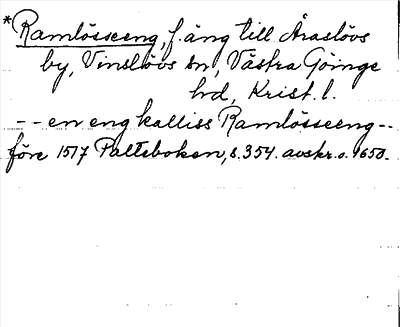 *Ramlösseeng, f. äng till Åraslövs
by, Vinslövs sn, Västra Göinge
hrd, Krist. l.
-- en eng kalliss Ramlösseeng --
före 1517 Palteboken, s. 354. avskr. o. 1650.